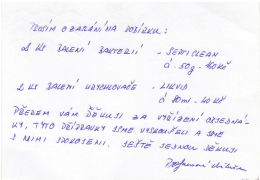 PROSÍM O ZASLÁNÍ NA DOBÍRKU:
2 KS BALENÍ BAKTERIÍ - SEPTICLEAN
á 50g - 110KČ
2 KS BALENÍ URYCHLOVAČE - LIKVID
á 80ml - 40KČ
PŘEDEM VÁM DĚKUJI ZA VYŘÍZENÍ OBJEDNÁV
KY, TYTO PŘÍPRAVKY JSME VYZKOUŠELI A JSME
S NIMI SPOKOJENI. JEŠTĚ JEDNOU DĚKUJI